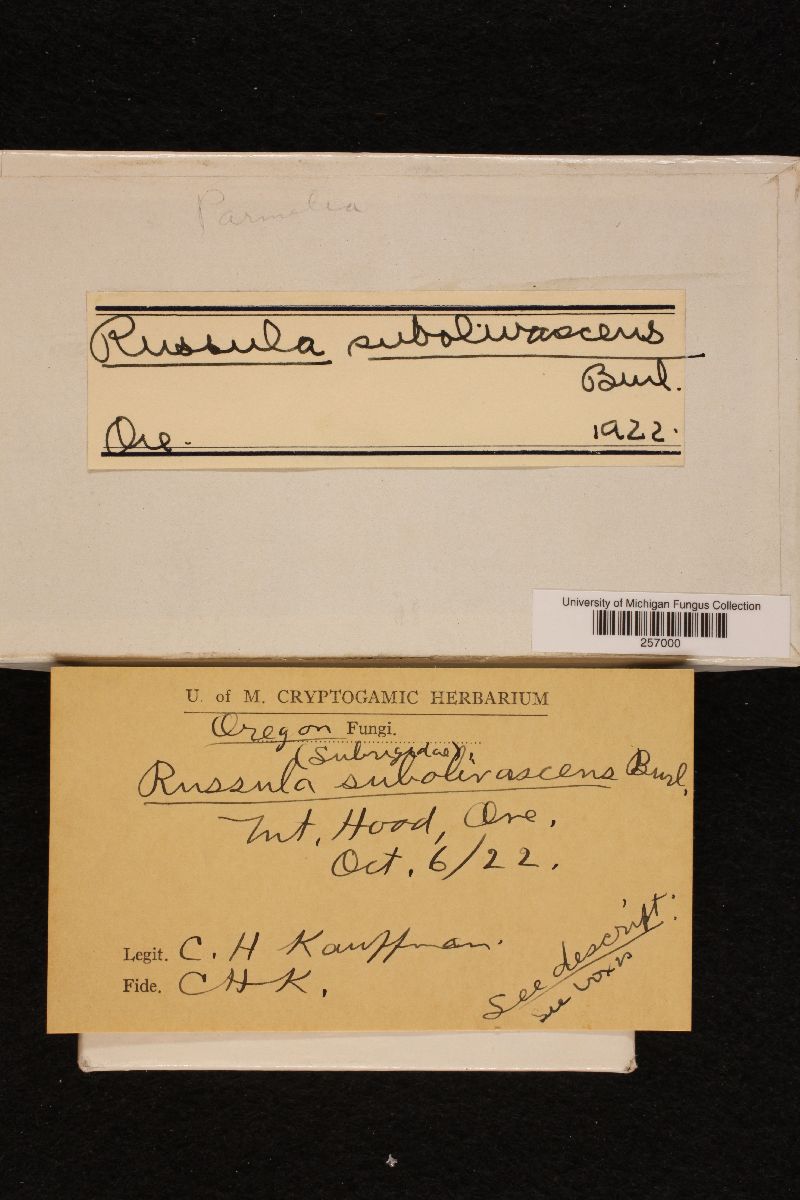 Parmelia
Russula subolivascens
Burl.
Ore. 1922.
University of Michigan Fungus Collection
257000
U. of M. CRYPTOGAMIC HERBARIUM
Oregon Fungi.
(Subrigidae).
Russula subolivascens Burl.
Mt. Hood, Ore.
Oct. 6/22.
Legit. C. H Kauffman.
Fide. CHK.
See descript.
see